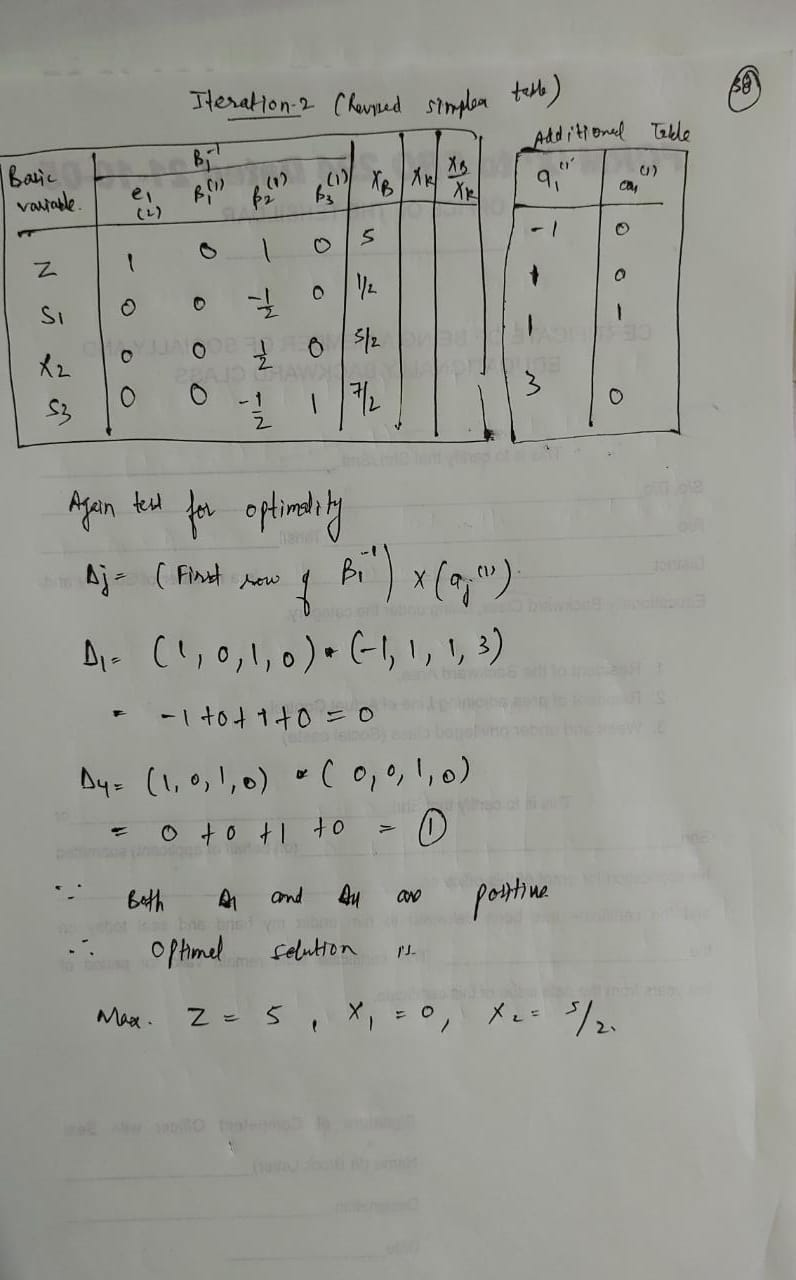 38
Iteration-2 (Revised simplex table)
Additional Table
Basic variable. B₁⁻¹ X_B X_k X_B/X_k a₁⁽¹⁾ a₄⁽¹⁾
e₁ (z) β₁⁽¹⁾ β₂⁽¹⁾ β₃⁽¹⁾
Z 1 0 1 0 5 -1 0
S1 0 0 -1/2 0 1/2 1 0
X2 0 0 1/2 0 5/2 1 1
S3 0 0 -1/2 1 7/2 3 0
Again test for optimality
Δj = (First row of B₁⁻¹) × (aj⁽¹⁾)
Δ1 = (1, 0, 1, 0) * (-1, 1, 1, 3)
= -1 + 0 + 1 + 0 = 0
Δ4 = (1, 0, 1, 0) * (0, 0, 1, 0)
= 0 + 0 + 1 + 0 = 1
∵ Both Δ1 and Δ4 are positive
∴ Optimal solution is
Max. Z = 5, X₁ = 0, X₂ = 5/2.